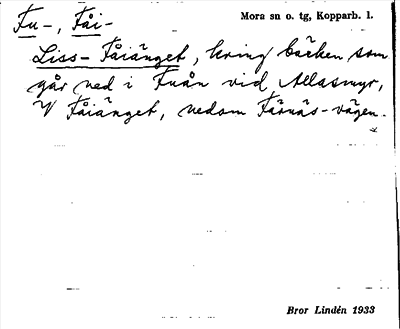 Fu-, Fåi-
Mora sn o. tg, Kopparb. l.
Liss-Fåiänget, kring bäcken som
går ned i Fuån vid Allasmyr,
V Fåiänget, nedom Färnäs-vägen.
Bror Lindén 1933